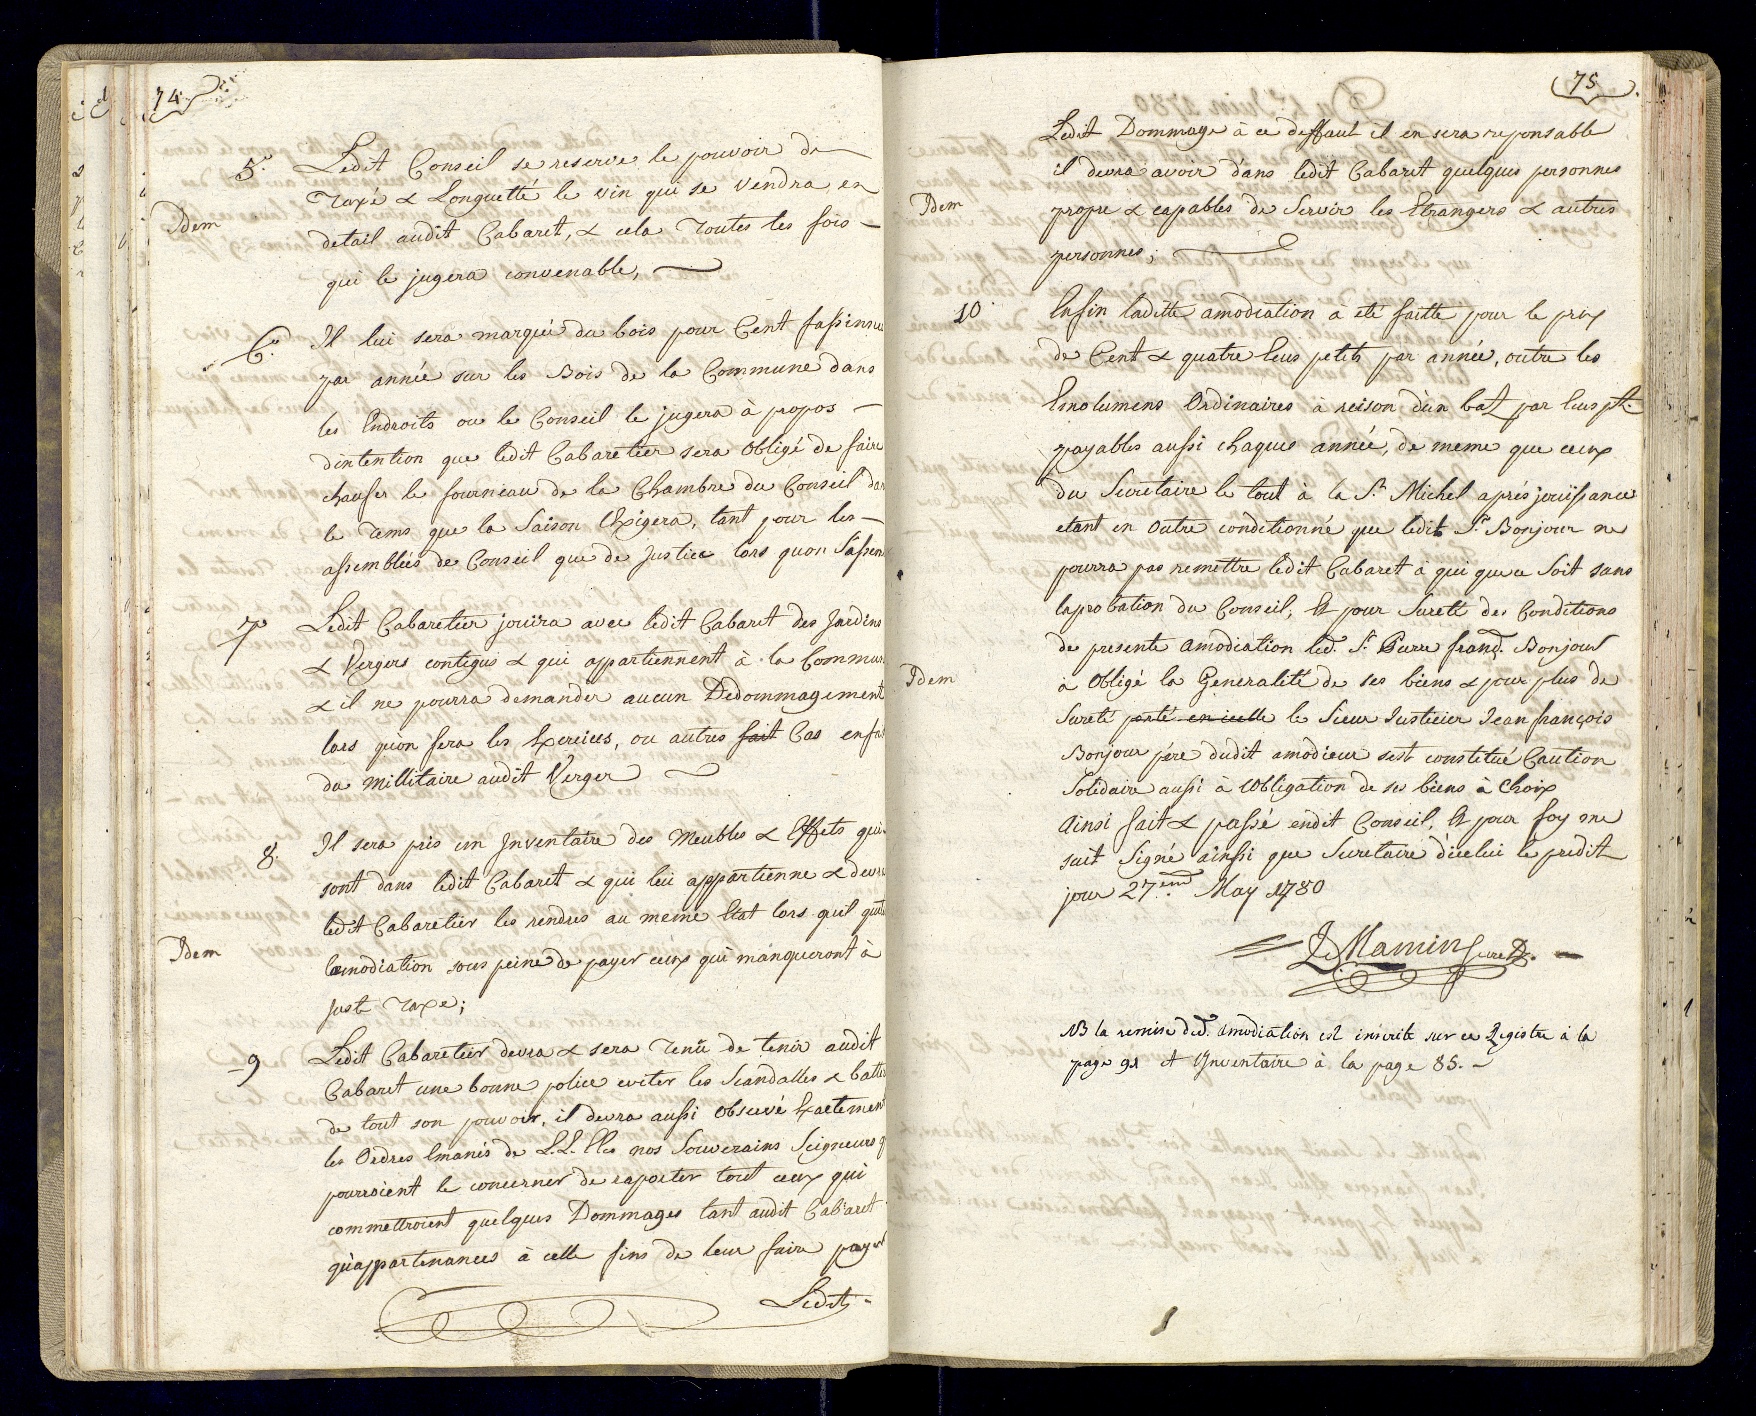 74
5.
Ledit Conseil se reserve le pouvoir de
Taxé & Longuetté le vin qui se vendra en
Idem
detail audit Cabaret, & cela Toutes les fois
qui le jugera convenable,
6.
Il lui sera marqué du bois pour Cent fassinnes
par année sur les Bois de la Commune dans
les Endroits ou le Conseil le jugera à propos
dintention que ledit Cabaretier sera obligé de faire
chaufer le fourneau de la Chambre du Conseil dan
le Tems que la Saison Exigera, tant pour les
assemblées de Conseil que de Justice lors quon Sassem
7
Ledit Cabaretier jouira avec ledit Cabaret des Jardins
& Vergers contigus & qui appartiennent à la Commun
& il ne pourra demander aucun Dedommagement
lors qu'on fera les Exercices, ou autres fait Cas enfai
du Millitaire audit Verger
8.
Il sera pris un Inventaire des Meubles & Effets qui
sont dans ledit Cabaret & qui lui appartienne & devra
ledit Cabaretier les rendres au meme Etat lors quil quitt
Idem
lamodiation sous peine de payer ceux qui manqueront à
Juste Taxe;
9
Ledit Cabaretier devra & sera Tenû de tenir audit
Cabaret une bonne police eviter les Scandalles & batte
de tout son pouvoir, il devra aussi observé Exactement
les Ordres Emanés de L.L. Elles nos Souverains Seigneurs q
pourroient le concerner de raporter tout ceux qui
commettroient quelques Dommages tant audit Cabaret
qu'appartenances à cette fins de leur faire payer
Ledit
75
Ledit Dommage à ce deffaut il en sera reponsable
il devra avoir dans ledit Cabaret quelques personnes
Idem
propre & capables de Servir les Etrangers & autres
personnes;
10
Enfin laditte amodiation à eté faitte pour le prix
de Cent & quatre Ecus petits par année, outre les
Emolumens Ordinaires à reison d'un batz par Ecus pt.
payables aussi chaques année, de meme que ceux
du Secretaire le tout à la St. Michel aprés jouissance
etant en outre conditionné que ledit Sr. Bonjour ne
pourra pas remettre ledit Cabaret à qui que ce Soit sans
laprobation du Conseil, Et pour Sureté des Conditions
de presente amodiation led. Sr. Pierre franç. Bonjour
Idem
à Obligé la Generalité de ses biens & pour plus de
Sureté porté en icelle le Sieur Justicier Jean françois
Bonjour pére dudit amodieur sest constitué Caution
Solidaire aussi à lobligation de ses biens à Choix
Ainsi fait & passé endit Conseil, Et pour foy me
suit Signé ainsi que Secretaire d'icelui le predit
jour 27eme May 1780
Mamin Secret.
NB la remise dud. amodiation est inscrite sur ce Registre à la
page 91 et Inventaire à la page 85.